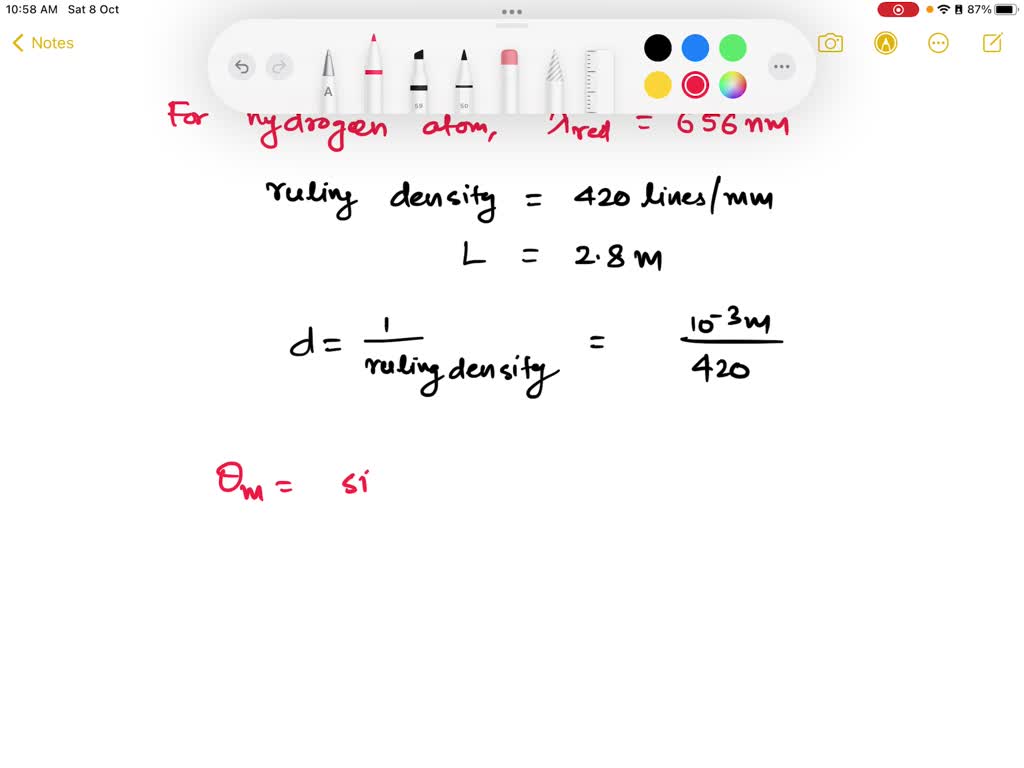 10:58 AM Sat 8 Oct 87%
Notes
A 59 50
For hydrogen atom, λred = 656 nm
ruling density = 420 lines/mm
L = 2.8 m
d = 1 / ruling density = 10⁻³m / 420
θm = si